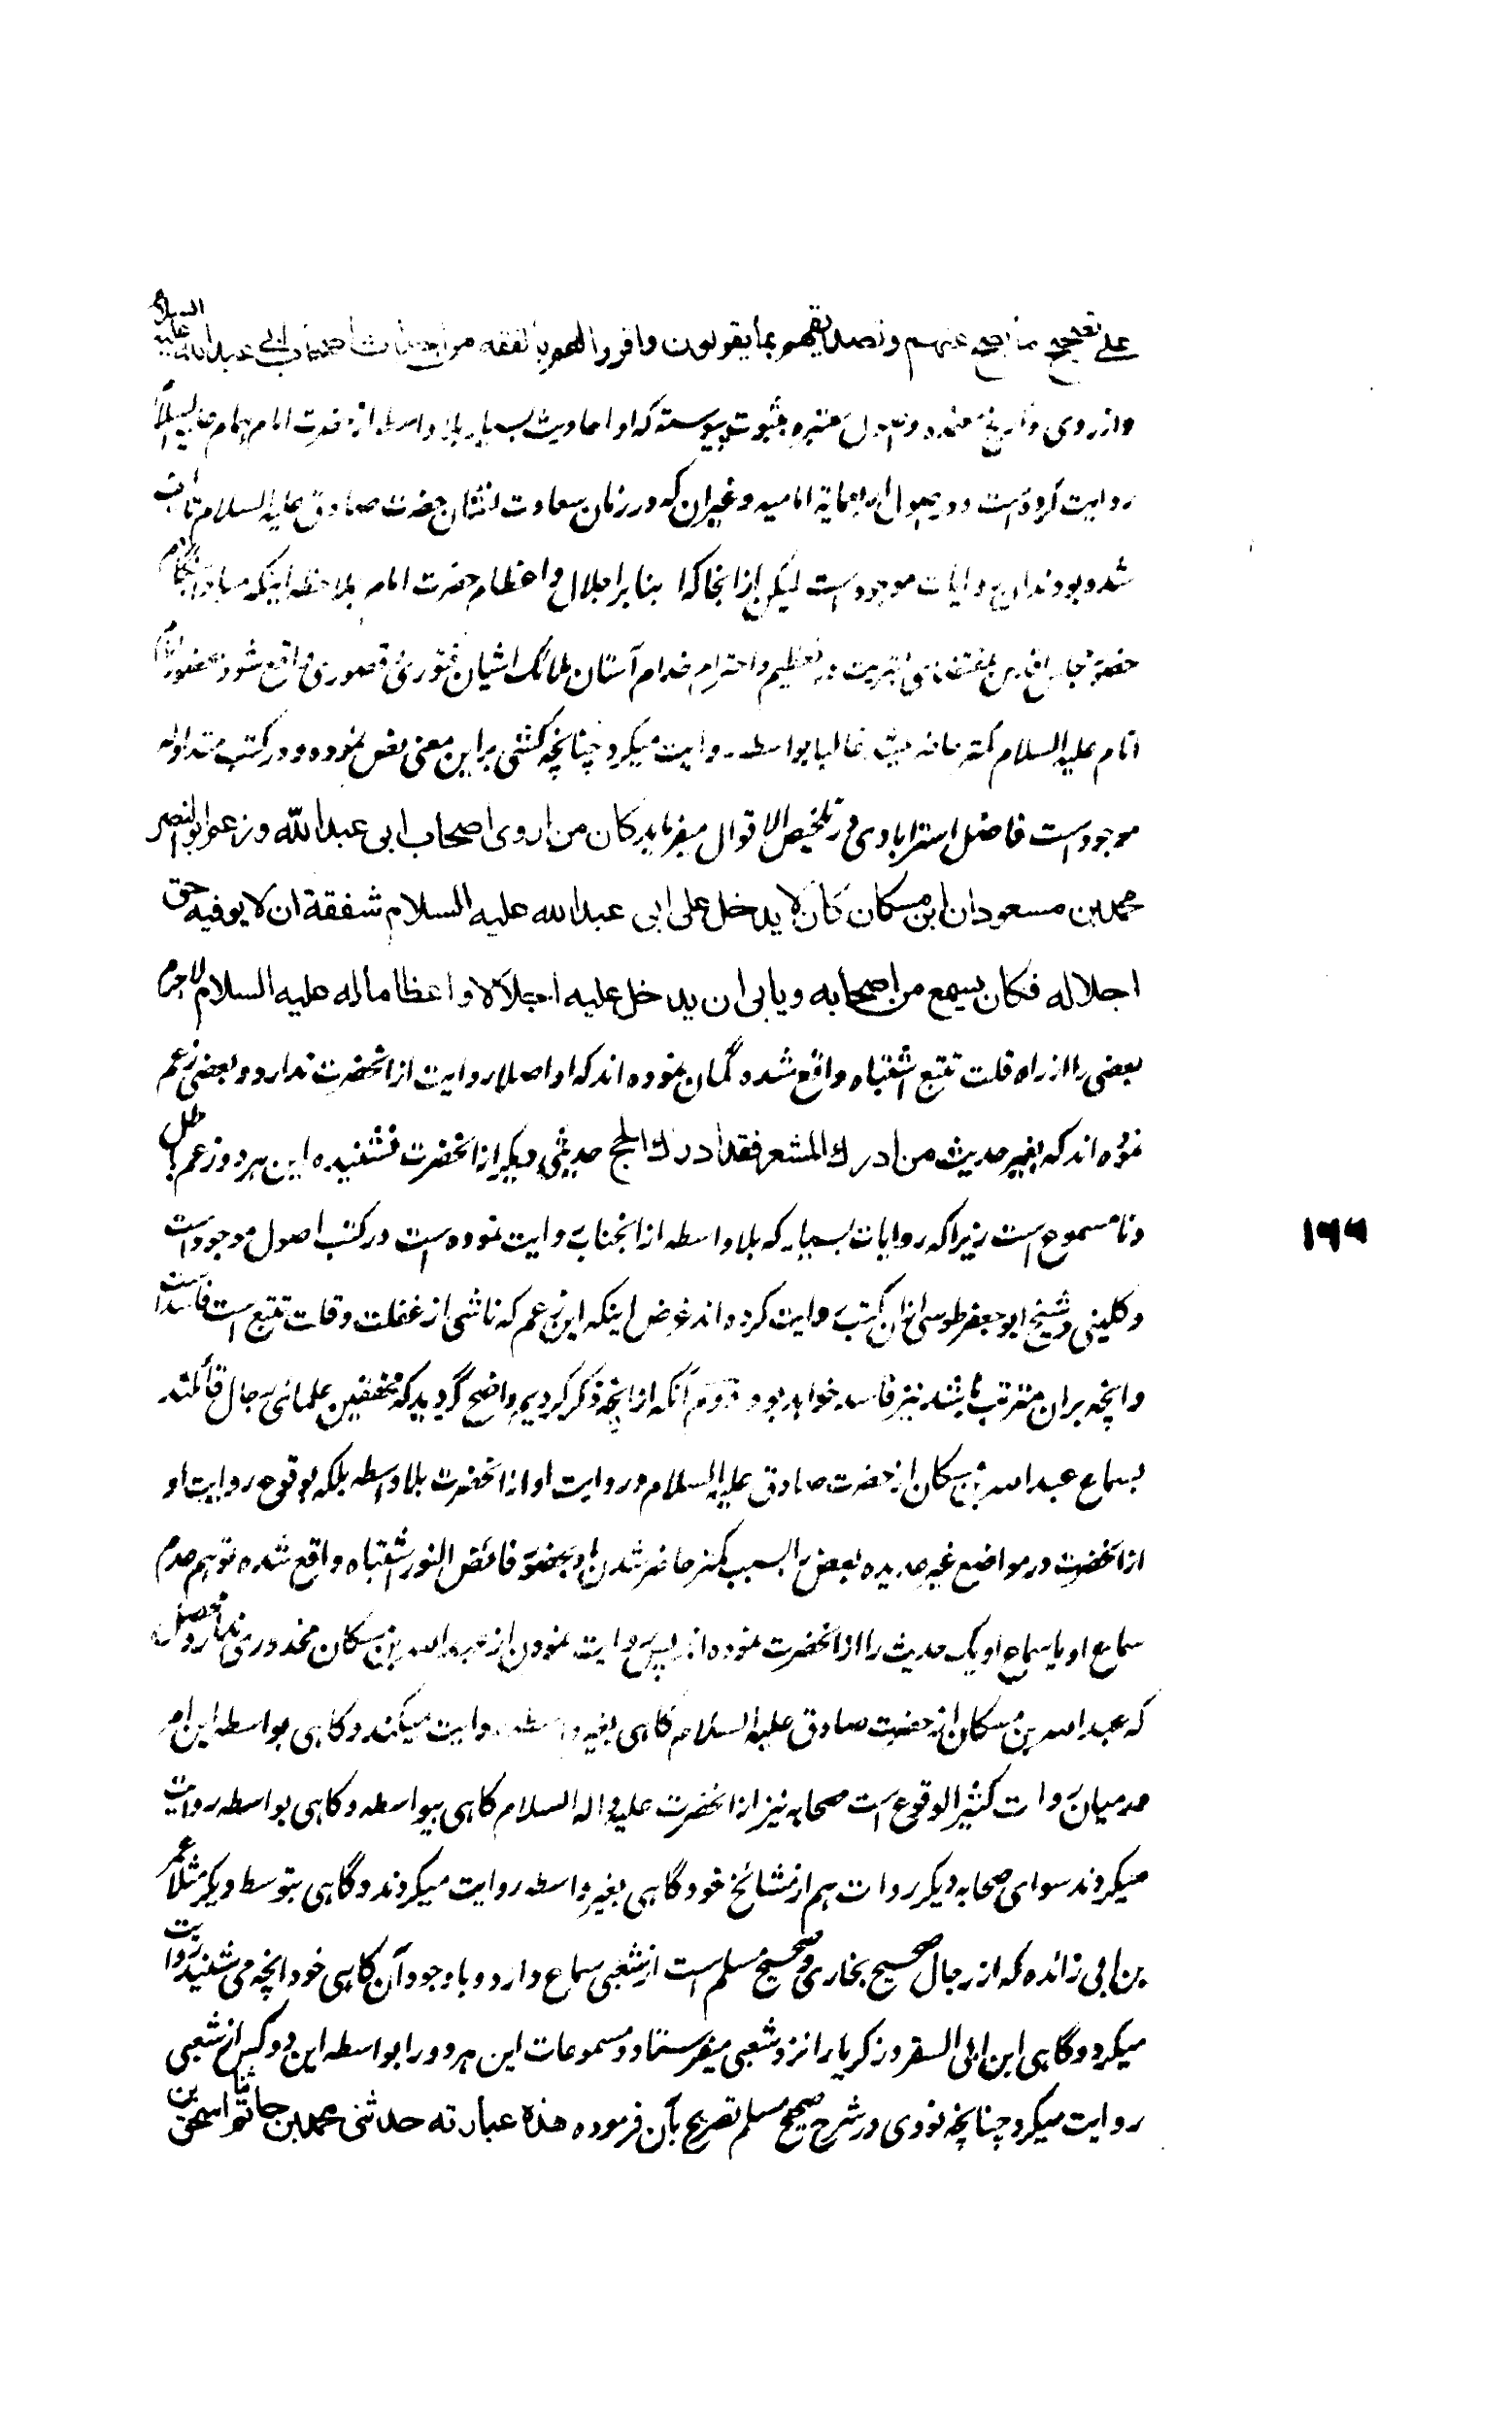 على تصحيح ما يصح عنهم وتصديقهم بما يقولون واقروا لهم بالفقه من اصحاب ابى عبد الله عليه السلام
و از روی تواریخ معتمده و اصول معتبره بثبوت پیوسته که او احادیث بسیار بلا واسطه از حضرت امام همام علیه السلام
روایت کرده است و در اصول اربعمایة امامیه و غیران که در زمان سعادت نشان حضرت صادق علیه السلام تالیف
شده بودند این روایات موجود است لیکن از انجا که بنا بر اجلال و اعظام حضرت امام بملاحظه اینکه مبادا هنگام
حضور بمقتضای بشریت در تعظیم و احترام خدام آستان ملائک اشیان فتوری و قصوری واقع شود بحضور
امام علیه السلام کمتر غالبا بواسطه روایت میکرد چنانچه کشی بر این معنی نص نموده و در کتب متداوله
موجود است فاضل استرابادی در تلخیص الاقوال میفرماید کان من اروی اصحاب ابی عبد الله وزعم ابو النصر
محمد بن مسعود ان ابن مسکان کان لا یدخل علی ابی عبد الله علیه السلام شفقة ان لا یوفیه حق
اجلاله فکان یسمع من اصحابه ویابی ان یدخل علیه اجلالا واعظاما له علیه السلام لاجرم
بعضی را از راه قلت تتبع اشتباه واقع شده گمان نموده اند که او اصلا روایت از انحضرت ندارد و بعضی زعم
نموده اند که بغیر حدیث من ادرك المشعر فقد ادرك الحج حدیثی دیگر از انحضرت نشنیده این هر دو زعم باطل
و نا مسموع است زیرا که روایات بسیار که بلا واسطه از انجناب روایت نموده است در کتب اصول موجود است
و کلینی و شیخ ابو جعفر طوسی ازان کتب روایت کرده اند غرض اینکه این زعم که ناشی از غفلت و قلت تتبع است فاسد است
و انچه بران مترتب باشد نیز فاسد خواهد بود دوم آنکه از انچه ذکر کردیم واضح گردید که محققین علمای رجال قائلند
بسماع عبد الله بن مسکان از حضرت صادق علیه السلام و روایت او از انحضرت بلا واسطه بلکه بوقوع روایت او
از انحضرت در مواضع غیر عدیده بعض را بسبب کمتر حاضر شدن او بحضور فائض النور اشتباه واقع شده توهم عدم
سماع او یا سماع او یک حدیث را از انحضرت نموده اند پس روایت نمودن از عبد الله بن مسکان محذوری ندارد محصل
که عبد الله بن مسکان از حضرت صادق علیه السلام گاهی بغیر واسطه روایت میکند و گاهی بواسطه این امر
در میان روات کثیر الوقوع است صحابه نیز از انحضرت علیه و اله السلام گاهی بیواسطه و گاهی بواسطه روایت
میکردند سوای صحابه دیگر روات هم از مشائخ خود گاهی بغیر واسطه روایت میکردند و گاهی بتوسط دیگر مثلا عمر
بن ابی زائده که از رجال صحیح بخاری و صحیح مسلم است از شعبی سماع دارد و با وجود آن گاهی خود انچه می شنید روایت
میکرد و گاهی ابن ابی السفر و زکریا را نزد شعبی میفرستاد و مسموعات این هر دو را بواسطه این دو کس از شعبی
روایت میکرد چنانچه نووی در شرح صحیح مسلم تصریح بآن فرموده هذه عبارته حدثنی محمد بن حاتم ثنا اسحق بن